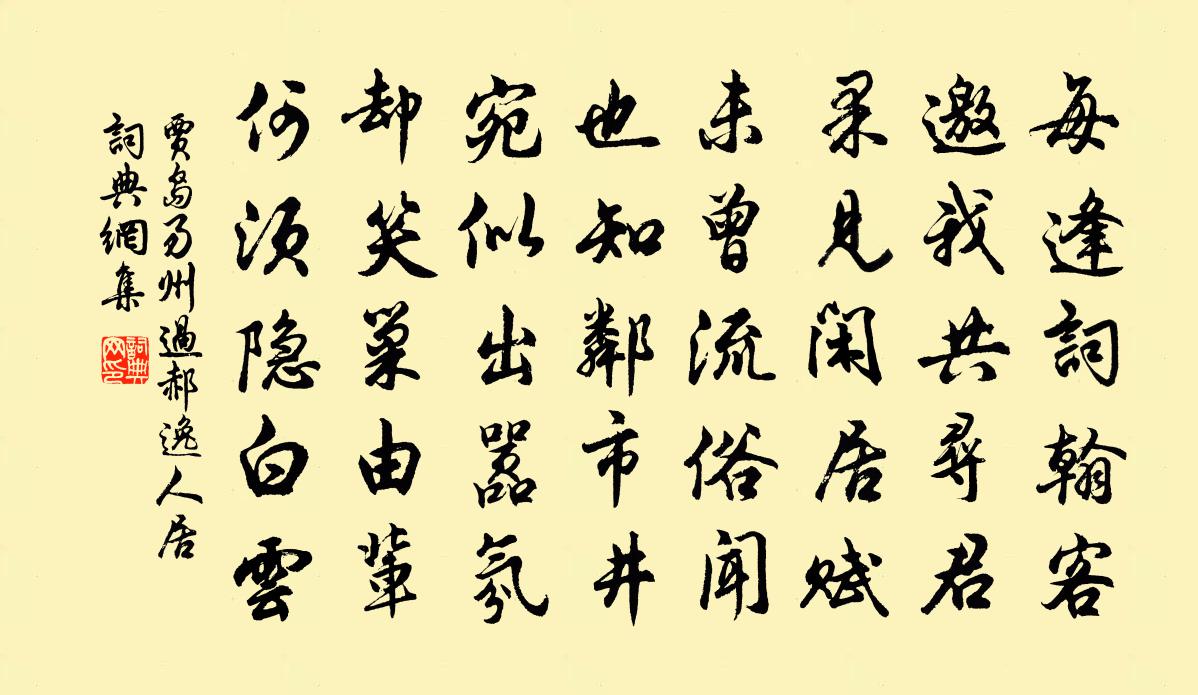 每逢詞翰客
邀我共尋君
果見閑居賦
未曾流俗聞
也知鄰市井
宛似出嚣氛
却笑巢由輩
何須隐白雲
賈島易州過郝逸人居
詞典網集
詞典網印